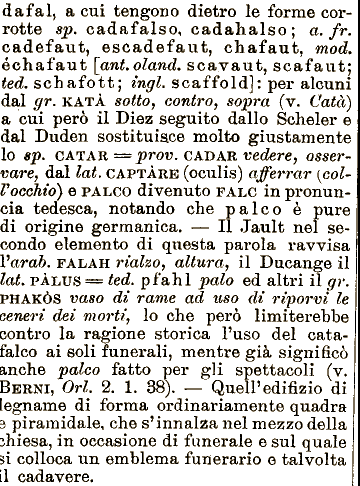 dafal, a cui tengono dietro le forme cor-
rotte sp. cadafalso, cadahalso; a. fr.
cadefaut, escadefaut, chafaut, mod.
échafaut [ant. oland. scavaut, scafaut;
ted. schafott; ingl. scaffold]: per alcuni
dal gr. KATÀ sotto, contro, sopra (v. Catà)
a cui però il Diez seguito dallo Scheler e
dal Duden sostituisce molto giustamente
lo sp. CATAR = prov. CADAR vedere, osser-
vare, dal lat. CAPTÀRE (oculis) afferrar (col-
l'occhio) e PALCO divenuto FALC in pronun-
cia tedesca, notando che palco è pure
di origine germanica. — Il Jault nel se-
condo elemento di questa parola ravvisa
l'arab. FALAH rialzo, altura, il Ducange il
lat. PÀLUS = ted. pfahl palo ed altri il gr.
PHAKÒS vaso di rame ad uso di riporvi le
ceneri dei morti, lo che però limiterebbe
contro la ragione storica l'uso del cata-
falco ai soli funerali, mentre già significò
anche palco fatto per gli spettacoli (v.
BERNI, Orl. 2. 1. 38). — Quell'edifizio di
legname di forma ordinariamente quadra
e piramidale, che s'innalza nel mezzo della
chiesa, in occasione di funerale e sul quale
si colloca un emblema funerario e talvolta
il cadavere.